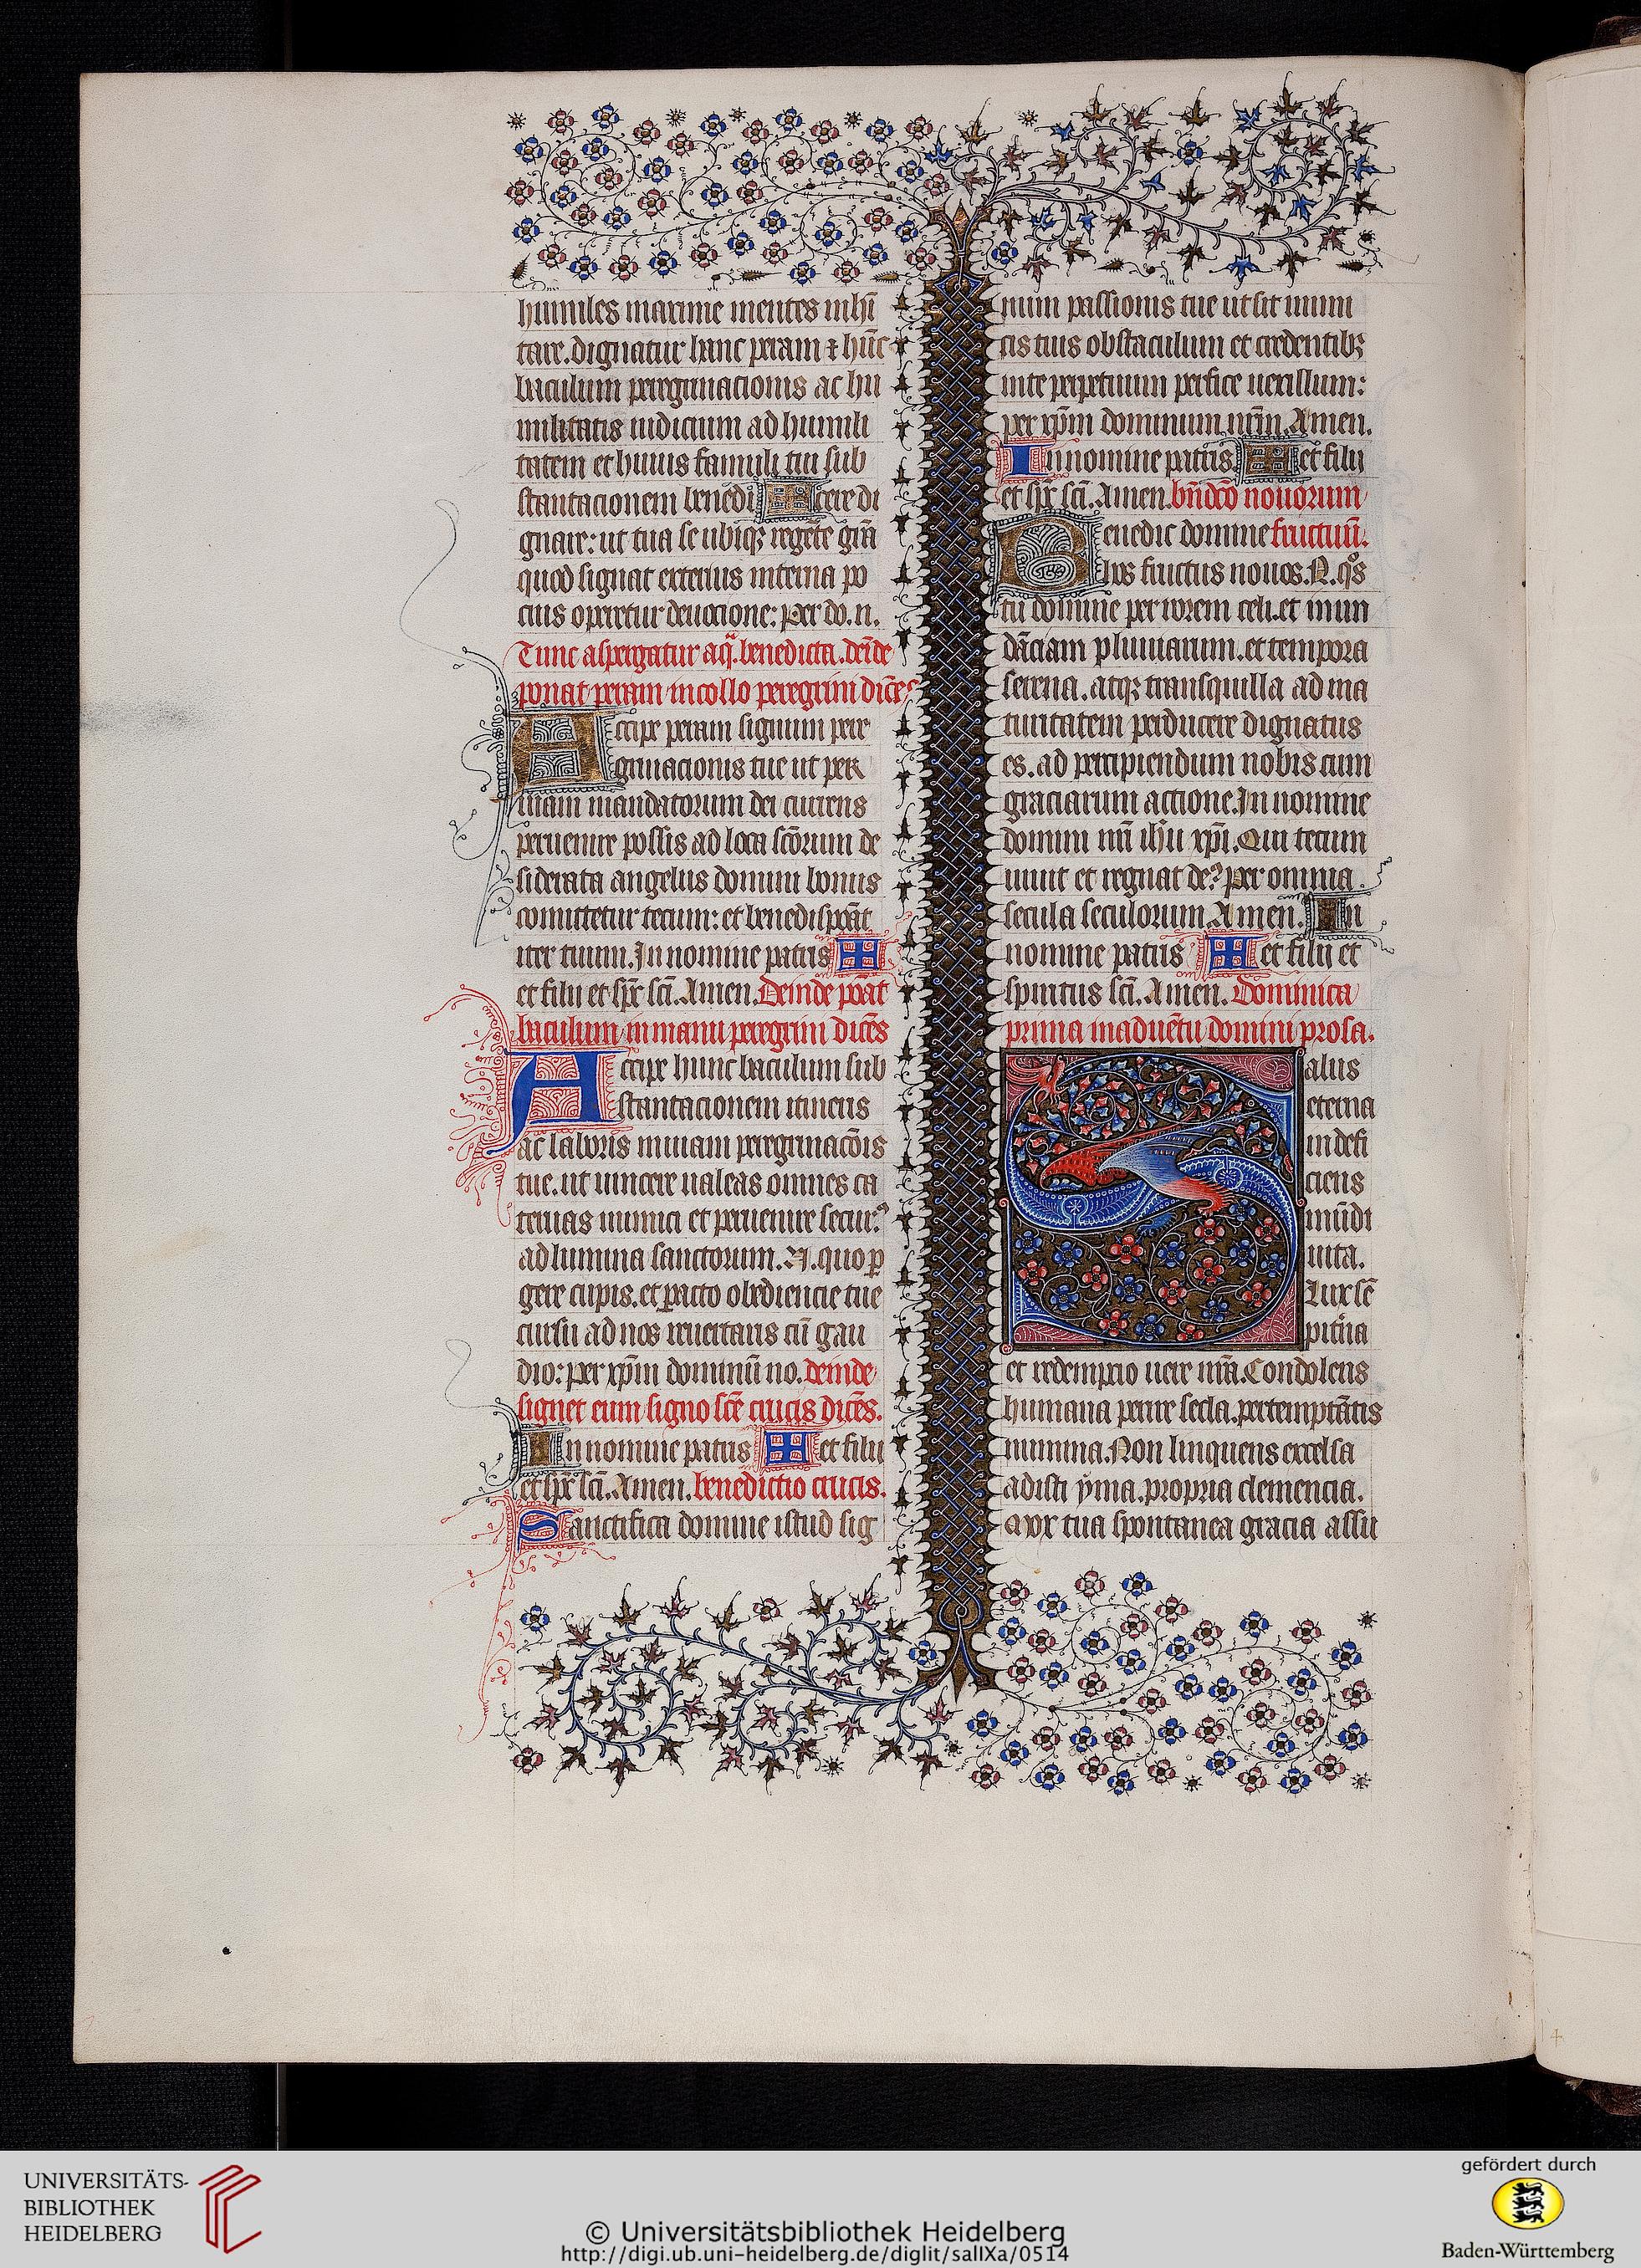 humiles maxime mentes inhī
tare.dignatur hanc peram ⁊ hūc
baculum peregrinacionis ac hu
militatis indicium ad humili
tatem et huius famuli tui sub
stantacionem benedi ✠ cere di
gnare: ut tua se ubiqꝫ regēte grā
quod signat exterius interna po
cius operetur deuocione: Per do.n.
Tunc aspergatur aq̄.benedicta.deīde
ponat peram in collo peregrini dicēs
Accipe peram signum pere
grinacionis tue ut per
uiam mandatorum dei currens
peruenire possis ad loca scōrum de
siderata angelus domini bonus
comittetur tecum: et bene disponāt
iter tuum. In nomine patris ✠
et filii et spc̄ sc̄i. Amen. Deinde ponat
baculum in manu peregrini dicēs
Accipe hunc baculum sub
stantacionem itineris
ac laboris in uiam peregrinacōis
tue.ut uincere ualeas omnes ca
teruas inimici et peruenire secur⁹
ad lumina sanctorum. N. quo ꝑ
gere cupis.et ꝑacto obediencie tue
cursu ad nos reuertaris cū gau
dio: per xp̄m dominū no. deinde
signet eum signo scē crucis dicēs.
In nomine patris ✠ et filii
et spc̄ sc̄i. Amen. benedictio crucis.
Sanctifica domine istud sig
num passionis tue ut sit inimi
cis tuis obstaculum et credentibꝫ
in te perpetuum perfice uexillum:
per xp̄m dominum nr̄m. Amen.
In nomine patris ✠ et filii
et spc̄ sc̄i. Amen. bn̄dcō nouorum
Benedic domine fructuū.
hos fructus nouos. N. qͦs
tu domine per rorem celi.et inun
dāciam pluuiarum.et tempora
serena.atqꝫ transquilla ad ma
turitatem perducere dignatus
es.ad percipiendum nobis cum
graciarum actione. In nomine
domini nr̄i ihū xp̄i. Qui tecum
uiuit et regnat de⁹ per omnia
secula seculorum. Amen. In
nomine patris ✠ et filii et
spiritus sc̄i. Amen. Dominica
prima in aduētu domini prosa.
Salus
eterna
indefi
ciens
mūdi
uita.
Lux sē
pit̄na
et redempcio uere nr̄a. Condolens
humana perire secla.per temptātis
numina. Non linquens excelsa
adisti ẏma.propria clemencia.
Mox tua spontanea gracia assu
UNIVERSITÄTS-
BIBLIOTHEK
HEIDELBERG
© Universitätsbibliothek Heidelberg
http://digi.ub.uni-heidelberg.de/diglit/salIXa/0514
gefördert durch
Baden-Württemberg